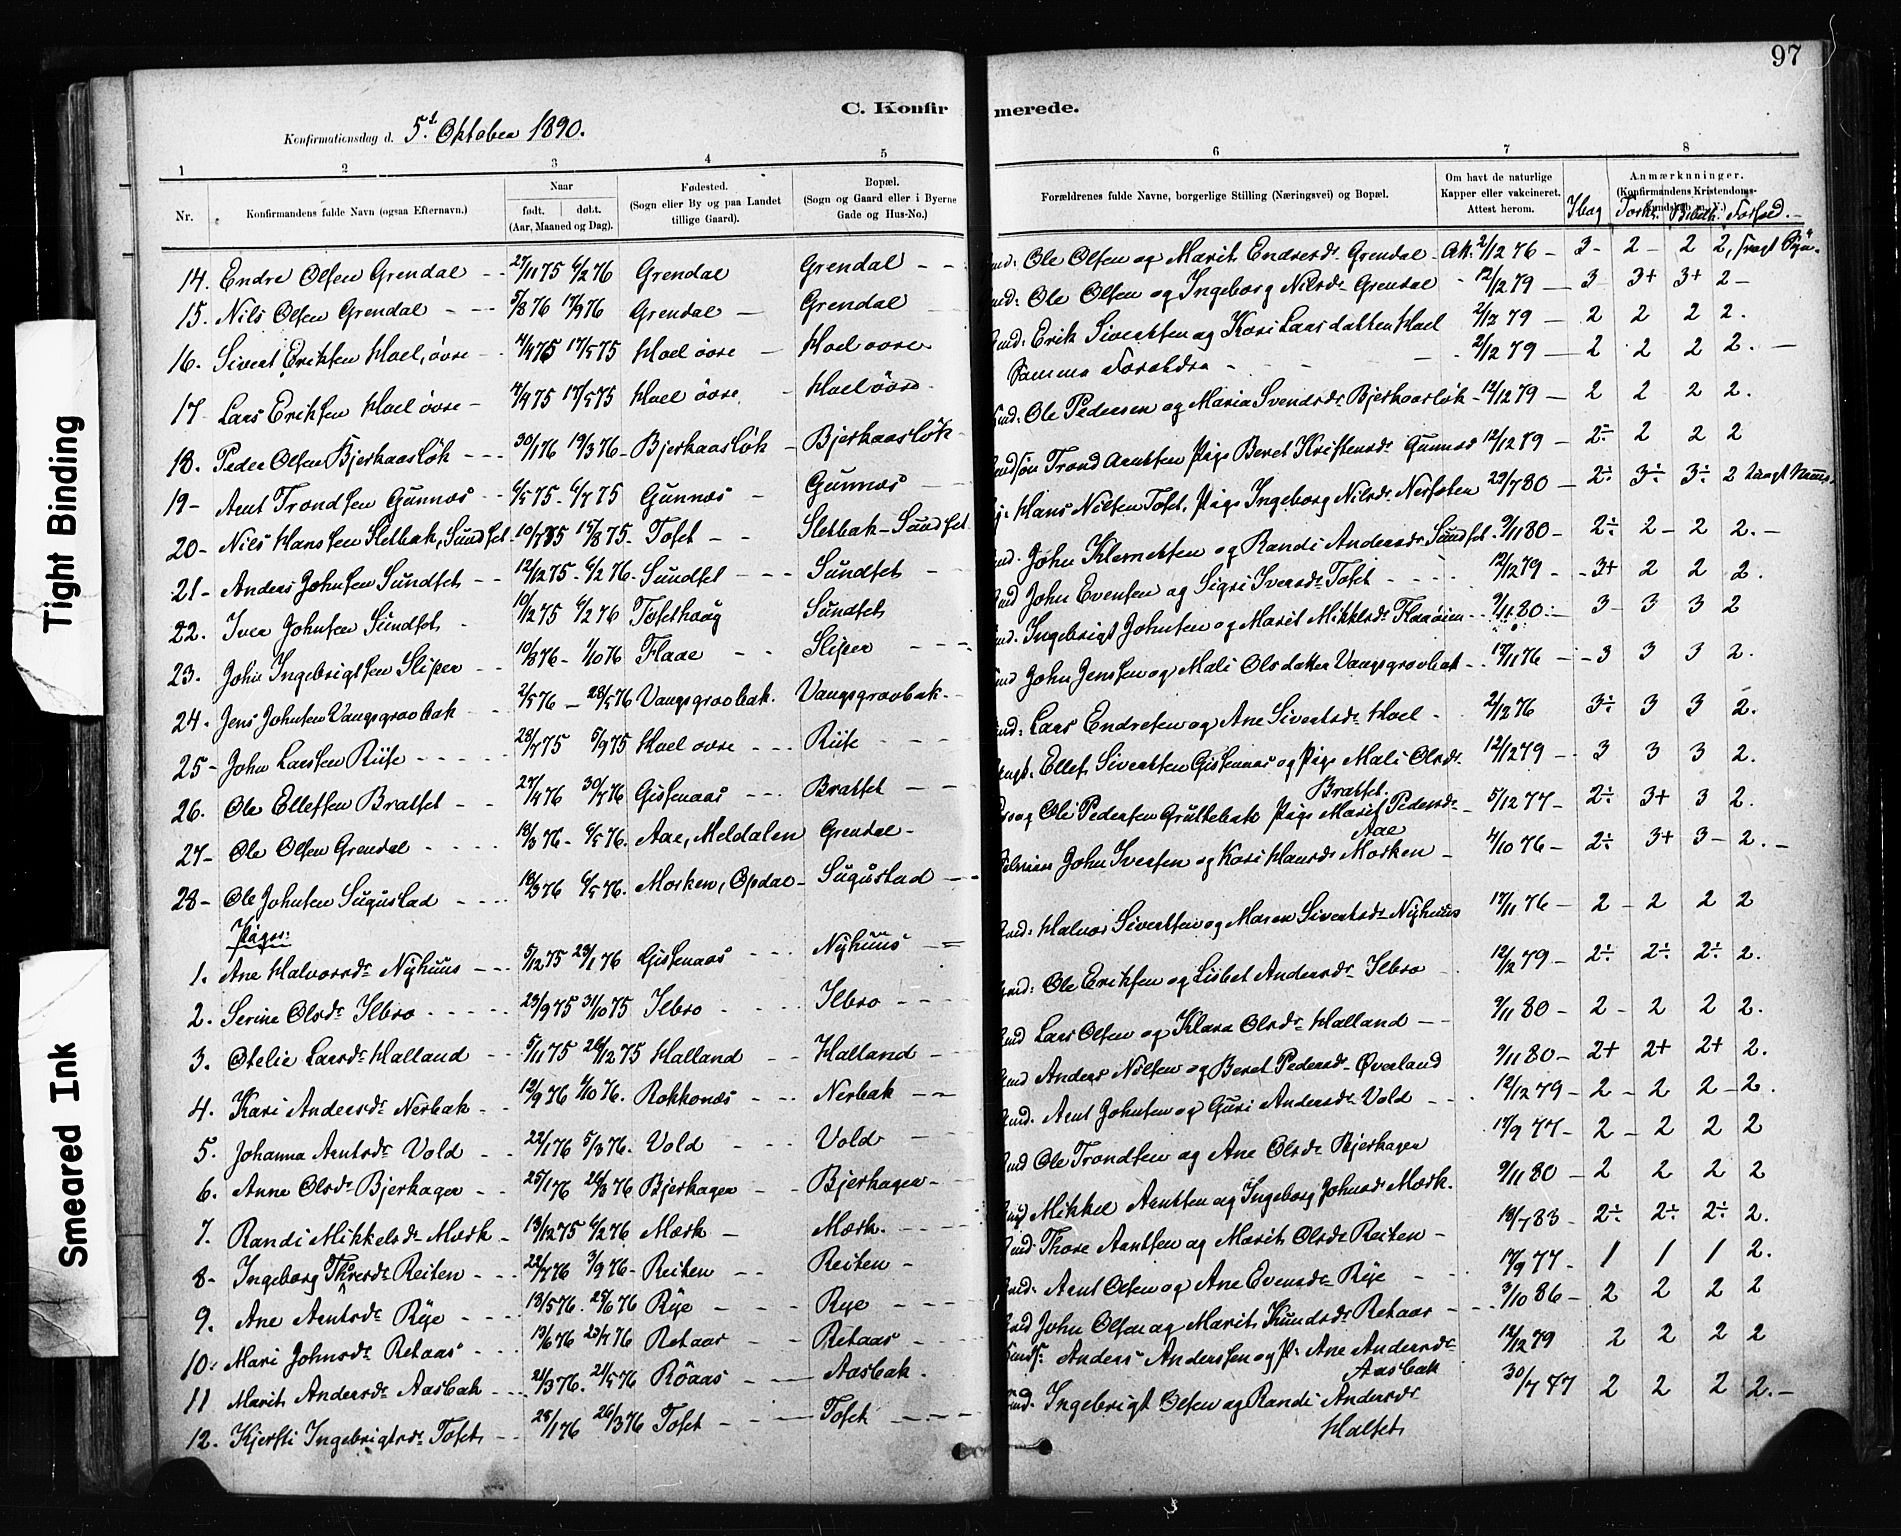 97
C. Konfirmerede.
Konfirmationsdag d. 5t Oktober 1890.
1 2 3 4 5 6 7 8
Nr. Konfirmandens fulde Navn (ogsaa Efternavn). Naar født. døbt. (Aar, Maaned og Dag). Fødested. (Sogn eller By og paa Landet tillige Gaard). Bopæl. (Sogn og Gaard eller i Byerne Gade og Hus-No.) Forældrenes fulde Navne, borgerlige Stilling (Næringsvei) og Bopæl. Om havt de naturlige Kapper eller vakcineret. Attest herom. Anmærkninger. (Konfirmandens Kristendomskundskab m. V.)
14. Endre Olsen Grendal 27/11 75 6/2 76 Grendal Grendal Ole Olsen og Marit Endresdr Grendal Att. 2/12 76 3 2 2 2,
15. Nils Olsen Grendal 5/8 76 17/9 76 Grendal Grendal Ole Olsen og Ingeborg Nilsdr Grendal 12/12 79 3 3+ 3+ 2
16. Sivert Eriksen Hoel, øvre 4/4 75 17/5 75 Hoel øvre Hoel øvre Erik Sivertsen og Kari Larsdatter Hoel 2/12 79 2 2 2 2.
17 Lars Eriksen Hoel øvre 4/4 75 17/5 75 Hoel øvre Hoel øvre Samme Forældre 2/12 79 2 2 2 2.
18. Peder Olsen Bjerkaasløk 30/1 76 19/3 76 Bjerkaasløk Bjerkaasløk Ole Pedersen og Maria Svendsdr Bjerkaasløk 12/12 79 2 2 2 2.
19 Arnt Trondsen Gunnes 6/5 75 6/7 75 Gunnæs Gunnæs Trond Arntsen Pige Beret Kristensdr Gunnes 12/12 79 2÷ 2 2 2
20 Nils Hansen Sletbak, Sundset 10/7 75 15/8 75 Tofet Sletbak-Sundset Hans Nilsen Tofet, Pige Ingeborg Nilsdr 22/7 80 2÷ 3÷ 3÷ 2
21 Anders Johnsen Sundset 12/12 75 6/2 76 Sundset Sundset John Klemetsen og Randi Andersdr Sundset 9/11 80 2÷ 2 2 2.
22. Iver Johnsen Sundset 10/12 75 6/2 76 Tosethaug Sundset John Evensen og Sigri Iversdr Tofet 12/12 79 3+ 2 2 2.
23. John Ingebrigtsen Sliper 10/8 76 1/10 76 Flaae Sliper Ingebrigt Johnsen og Marit Mikkelsdr 9/11 80 3 3 3 2
24. Jens Johnsen Vangsgravbak 2/5 76 28/5 76 Vangsgravbak. Vangsgravbak. John Jenssen og Mali Olsdatter Vangsgravbak 17/11 76 3 3 3 2.
25 John Larsen Riise 28/7 75 5/9 75 Hoel øvre Riise Lars Endresen og Ane Sivertsdr Hoel 2/12 76 3÷ 3 3 2.
26. Ole Ellefsen Bratset 27/4 76 30/7 76 Gisenaas Bratset Ellef Sivertsen Gisenaas og Pige Mali Olsdr Bratset. 12/12 79 3 3 3 2.
27 Ole Olsen Grendal 18/3 76 6/5 76. Aae, Meldalen Grendal Ole Pedersen Pige Marit Pedersdr Aae 5/12 77 2÷ 3+ 3 2.
28 Ole Johnsen Sugustad 18/3 76 6/5 76. Morken, Opdal Sugustad John Iversen og Kari Hansdr Morken 4/10 76 2÷ 3+ 3 2.
Piger:
1. Ane Halvorsdr Nyhuus 5/12 75 23/1 76 Gisenaas Nyhuus Halvor Sivertsen og Maren Sivertsdr Nyhuus 17/11 76 2 2 2 2
2. Serine Olsdr Ilbro 23/9 75 31/10 75 Ilbro Ilbro Ole Eriksen og Lisbet Andersdr Ilbro 12/12 79 2÷ 2÷ 2÷ 2.
3. Otelie Larsdr Halland 5/11 75 26/12 75 Halland Halland Lars Olsen og Klara Olsdr Halland 9/11 80 2 2 2 2.
4. Kari Andersdr Nerbak 12/9 76 1/10 76. Rokkonæs Nerbak Anders Nilsen og Beret Pedersdr Øverland 9/11 80 2+ 2+ 2+ 2.
5. Johanna Arntsdr Vold 22/1 76 5/3 76. Vold Vold Arnt Johnsen og Guri Andersdr Vold 12/12 79 2 2 2 2.
6. Anne Olsdr Bjerhagen 25/1 76 26/3 76 Bjerhagen Bjerhagen Ole Trondsen og Ane Olsdr Bjerhagen 17/9 77 2 2 2 2
7. Randi Mikkelsdr Mærk 13/12 75 6/2 76 Mærk Mærk. Mikkel Arntsen og Ingeborg Johnsdr Mærk. 9/11 80 2 2 2 2
8 Ingeborg Thoresdr Reiten 22/7 76 3/9 76 Reiten Reiten Thore Arntsen og Marit Olsdr Reiten 13/7 83 2÷ 2÷ 2÷ 2.
9. Ane Arntsdr Rye 13/5 76. 25/6 76 Rye Rye Arnt Olsen og Ane Evensdr Rye 17/9 77 1 1 1 2.
10. Mari Johnsdr Retaas 13/6 76 23/7 76 Retaas Retaas John Olsen og Marit Knudsdr Retaas 3/10 86 2 2 2 2
11 Marit Andersdr Aasbak 21/3 76. 21/5 76 Röaas Aasbak. Anders Anderssen og P. Ane Andersdr Aasbak 12/12 79 2 2 2 2
12. Kjersti Ingebrigtsdr Tofet 28/1 76 26/3 76 Tofet Tofet Ingebrigt Olsen og Randi Andersdr Halset 30/7 77 2 2 2 2.
Tight Binding
Smeared Ink